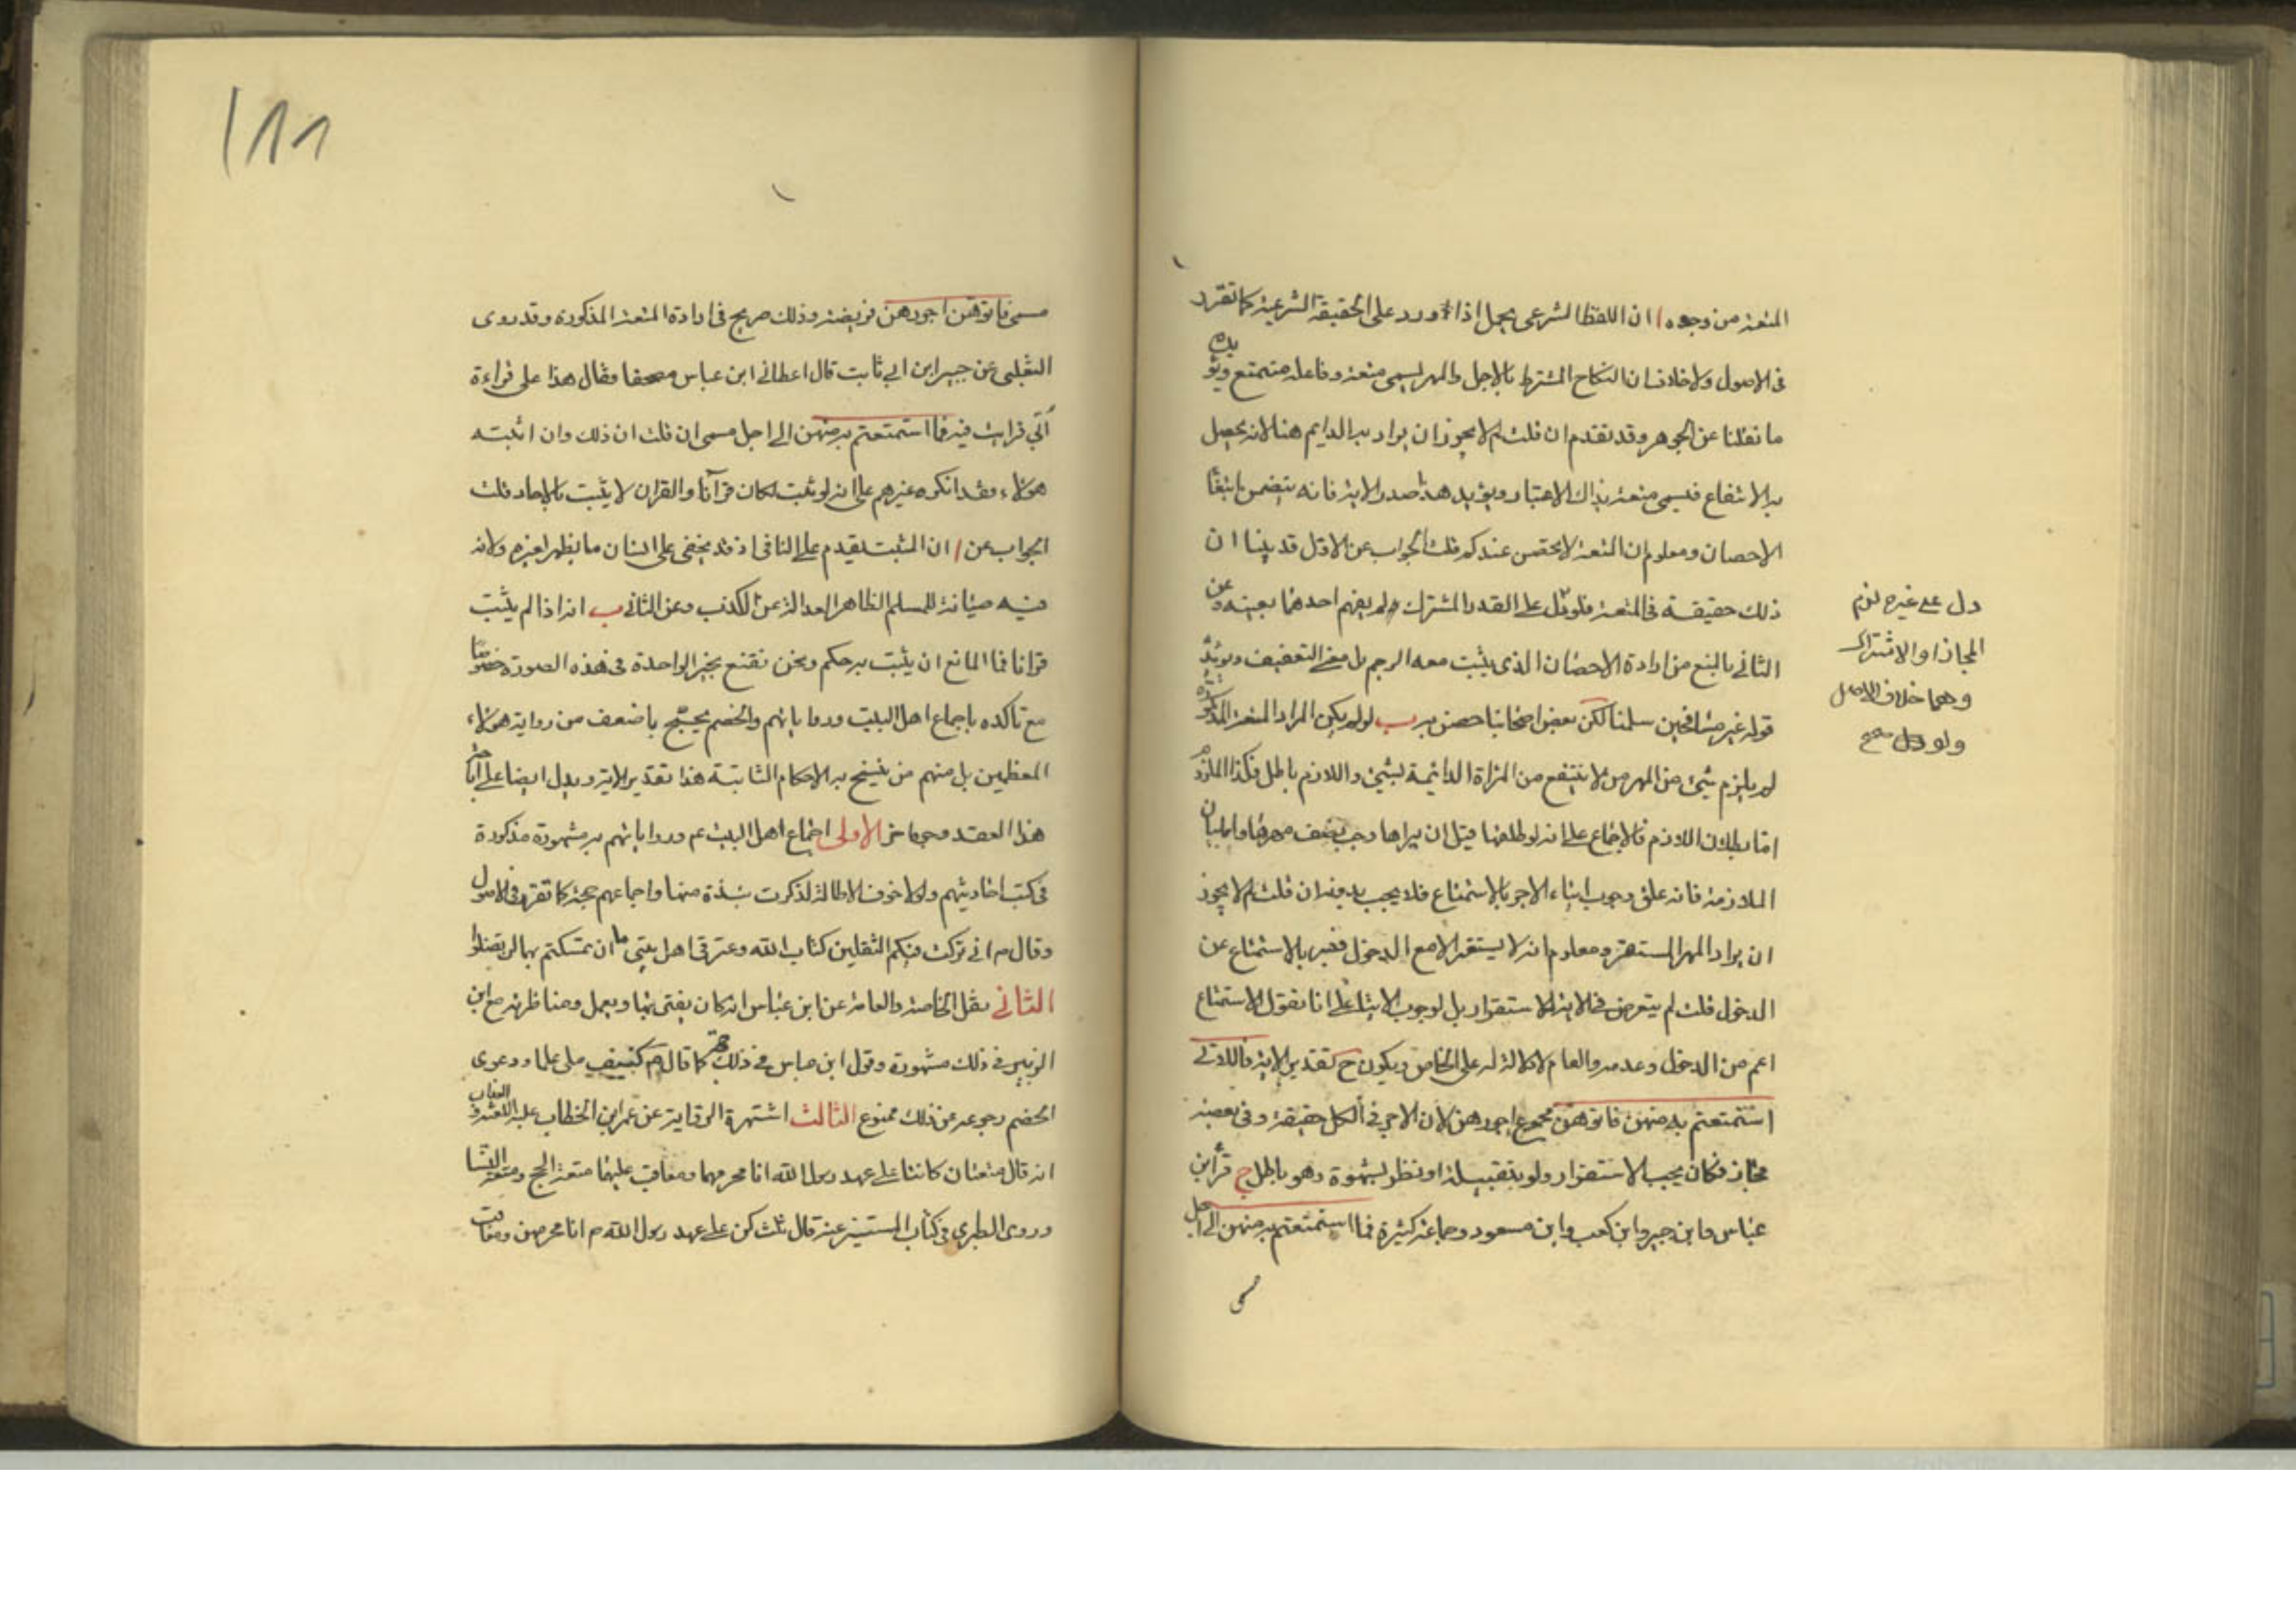 المتعة من وجوه ا ان اللفظ الشرعى يحمل اذا ورد على الحقيقة الشرعية كما تقرر
فى الاصول ولا خلاف ان النكاح المشترط بالاجل والمهر يسمى متعة وفاعله متمتع ويؤيده
ما نقلنا عن الجوهر وقد تقدم ان قلت لم لا يجوز ان يراد به الدايم هنا لانه يحصل
به الانتفاع فيسمى متعة بذاك الاعتبار ويؤيد هذا صدر الاية فانه يتضمن ابتغا
الاحصان ومعلوم ان المتعة لا تحصن عندكم قلت الجواب عن الاول قد بينا ان
ذلك حقيقة فى المتعة فلو دل على القدر المشترك لم يفهم احدهما بعينه وعن
الثانى بالمنع من ارادة الاحصان الذى يثبت معه الرجم بل معنى التعفيف ويؤيده
قوله غير مسافحين سلمنا لكن بعض اصحابنا حصن به ب لو لم يكن المراد المتعة المذكورة
لم يلزم شيئ من المهر من لا ينتفع من المراة الدائمة بشيئ واللازم باطل فكذا الملزوم
اما بطلان اللازم فالاجماع على انه لو طلقها قبل ان يراها وجب نصف مهرها واما بيان
الملازمة فانه علق وجوب ايتاء الاجر بالاستمتاع فلا يجب بدونه ان قلت لم لا يجوز
ان يراد المهر المستقر ومعلوم انه لا يستقر الا مع الدخول فعبر بالاستمتاع عن
الدخول قلت لم يتعرض فى الاية للاستقرار بل لوجوب الايتاء على انا نقول الاستمتاع
اعم من الدخول وعدمه والعام لا دلالة له على الخاص ويكون ح تقدير الاية فاللاتى
استمتعتم به منهن فاتوهن مجموع اجورهن لان الاجر فى الكل حقيقة وفى بعضه
مجاز فكان يجب الاستقرار ولو بتقبيلة او نظر بشهوة وهو باطل ج قرأ ابن
عباس وابن جبير وابن كعب وابن مسعود وجماعة كثيرة فما استمتعتم به منهن الى اجل
مسمى
دل على غيره لزم
المجاز او الاشتراك
وهما خلاف الاصل
ولو دل صح
مسمى فاتوهن اجورهن فريضة وذلك صريح فى ارادة المتعة المذكورة وقد روى
الثعلبى عن جبير ابن ابى ثابت قال اعطانى ابن عباس مصحفا فقال هذا على قراءة
أبي فرايت فيه فما استمتعتم به منهن الى اجل مسمى ان قلت ان ذلك وان اثبته
هؤلاء فقد انكره غيرهم على انه لو ثبت لكان قرآنا والقران لا يثبت بالاحاد قلت
الجواب عن ا ان المثبت يقدم على النافى اذ قد يخفى على انسان ما يظهر لغيره ولانه
فيه صيانة للمسلم الظاهر العدالة عن الكذب وعن الثانى ب انه اذا لم يثبت
قرانا فما المانع ان يثبت به حكم ونحن نقنع بخبر الواحدة فى هذه الصورة خصوصا
مع تاكده باجماع اهل البيت ورواياتهم والخصم يحتج باضعف من رواية هؤلاء
المعظمين بل منهم من ينسخ به الاحكام الثابتة هذا تقدير الاية ويدل ايضا على اباحة
هذا العقد وجوه اخر الاولى اجماع اهل البيت عم ورواياتهم به مشهورة مذكورة
فى كتب احاديثهم ولولا خوف الاطالة لذكرت نبذة منها واجماعهم حجة كما تقرر فى الاصول
وقال م انى تركت فيكم الثقلين كتاب الله وعترتى اهل بيتى ما ان تمسكتم بهما لن تضلوا
الثانى نقل الخاصة والعامة عن ابن عباس انه كان يفتى بها ويعمل ومناظرته مع ابن
الزبير فى ذلك مشهورة وقول ابن عباس فى ذلك حجة كما قال م كنيف ملى علما ودعوى
الخصم رجوعه عن ذلك ممنوع الثالث اشتهرة الرواية عن عمر ابن الخطاب عليه اللعنة والعذاب
انه قال متعتان كانتا على عهد رسول الله انا محرمهما ومعاقب عليهما متعة الحج ومتعة النسا
وروى الطبرى فى كتاب المستنير عنه قال ثلث كن على عهد رسول الله م انا محرمهن ومعاقب